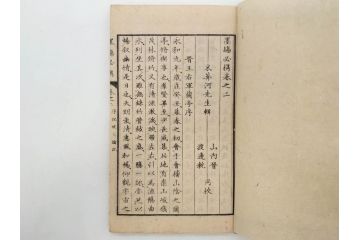 墨場必携卷之二
米葊河先生輯
山内晉
渡邊乾
同校
晉王右軍蘭亭序
永和九年歲在癸丑暮春之初會于會稽山陰之蘭
亭脩禊事也羣賢畢至少長咸集此地有崇山峻領
茂林脩竹又有清流激湍映帶左右引以爲流觴曲
水列坐其次雖無絲竹管絃之盛一觴一詠亦足以
暢叙幽情是日也天朗氣清惠風和暢仰觀宇宙之
墨場必携 卷二